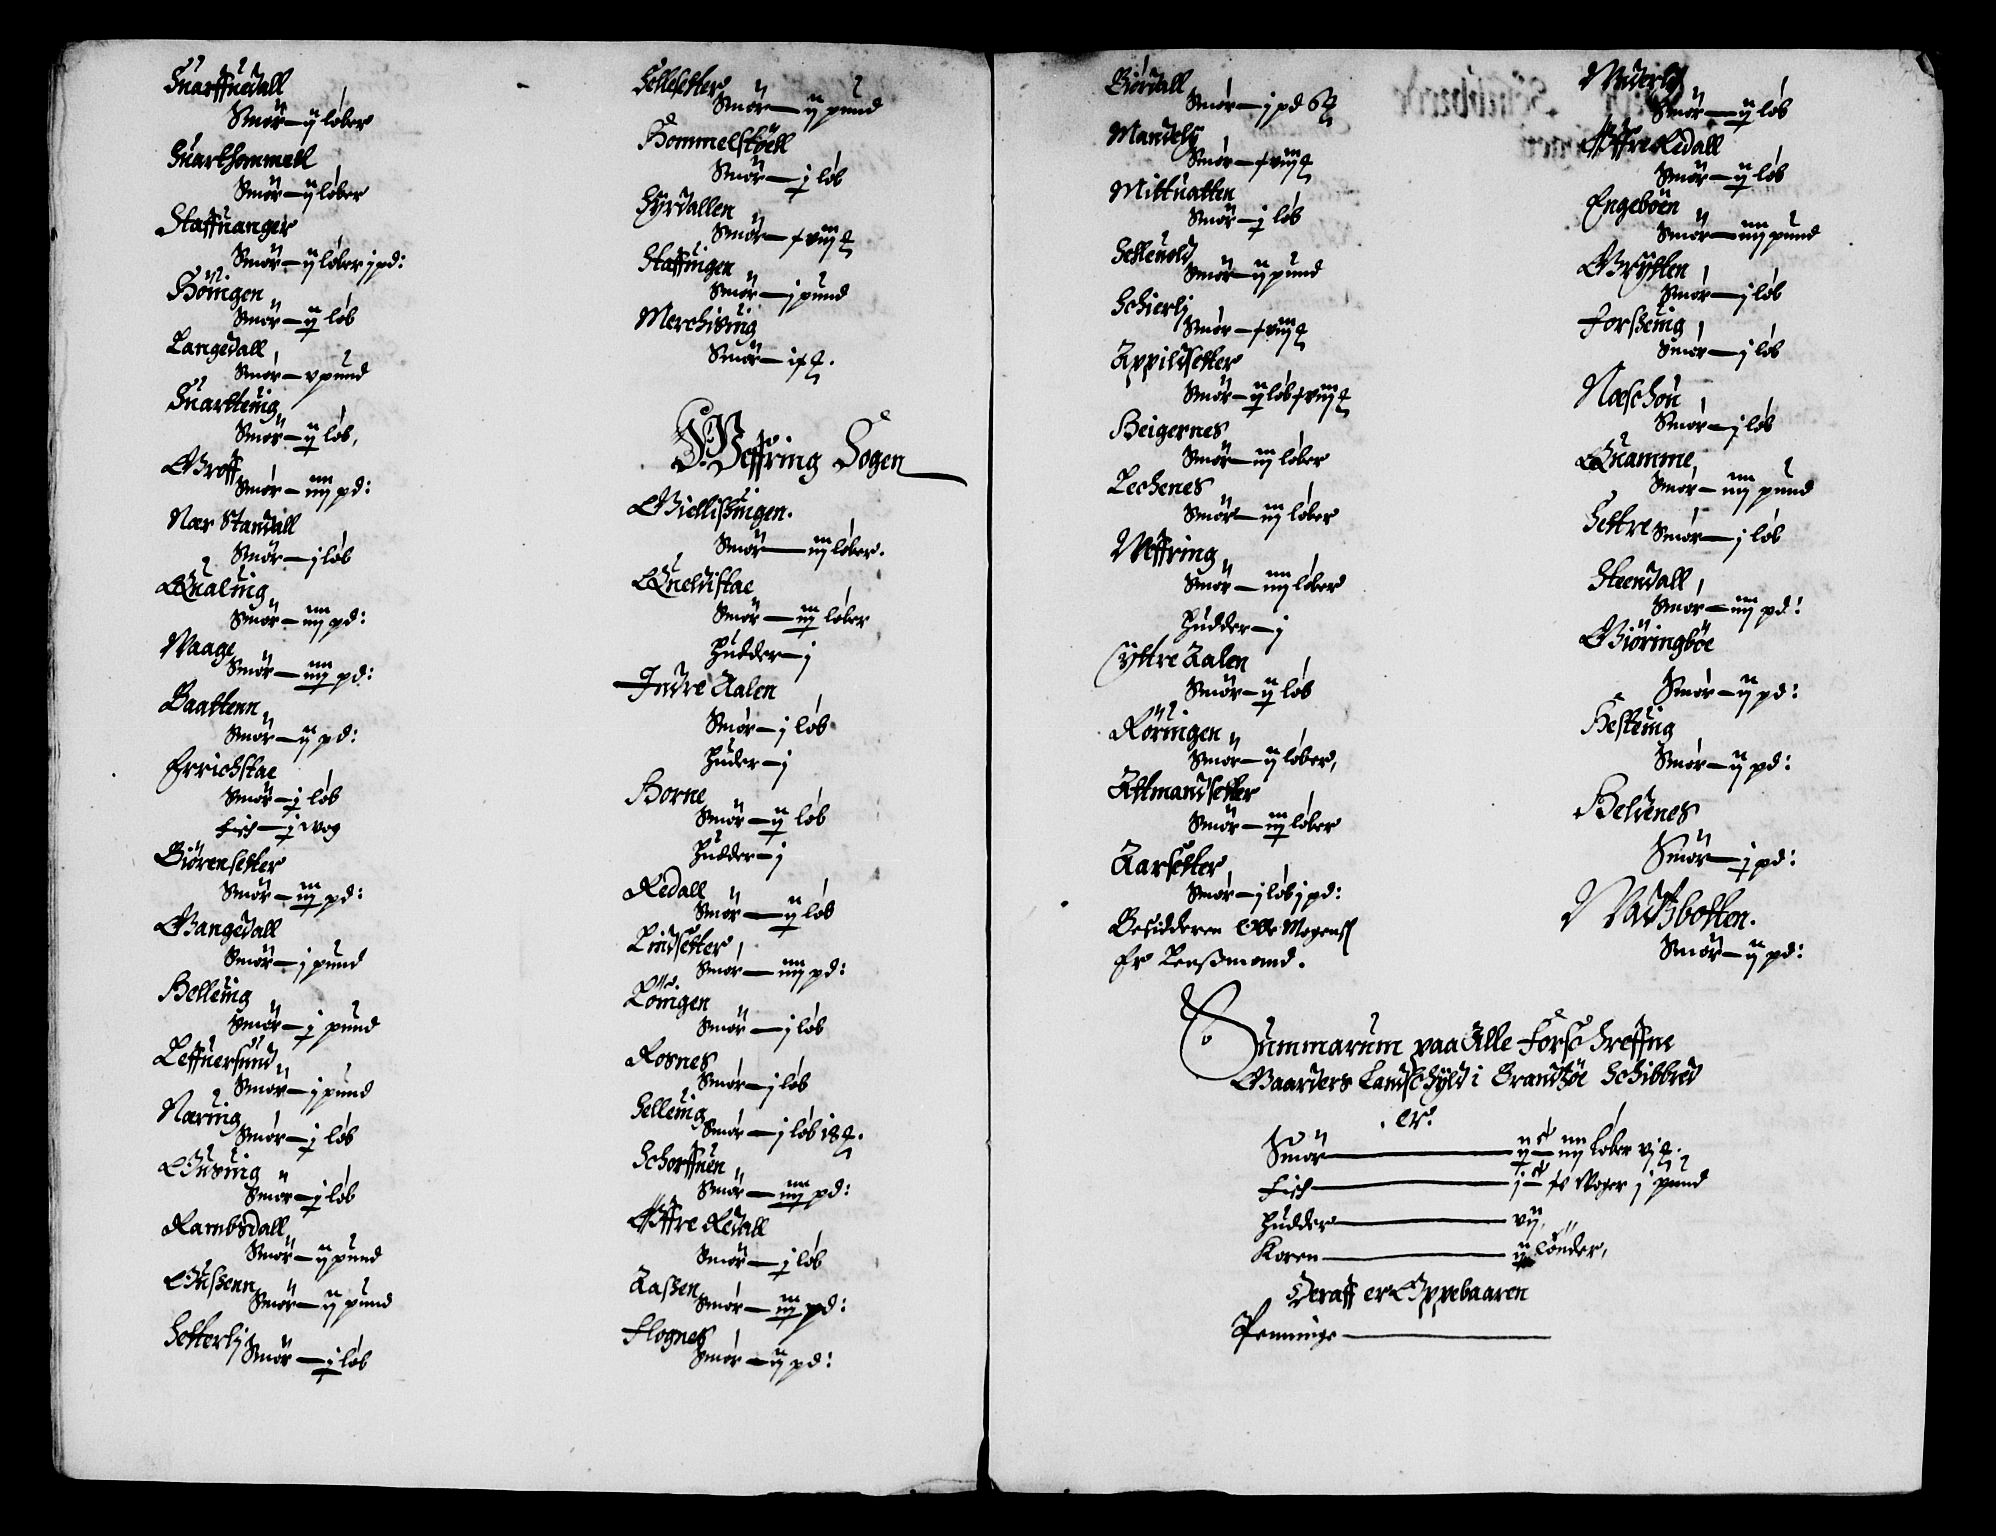 Suarffuedall
Smør — ij løber
Suarthommell
Smør — ij løber
Staffuanger
Smør — ij løber j pd:
Høuigen
Smør — ij løb
Langedall
Smør — v pund
Suarteuig
Smør — ij løb,
Groff
Smør — iiij pd:
Nær Standall
Smør — j løb
Qualuig
Smør — iiij pd:
Waage
Smør — iiij pd:
Baattenn
Smør — ij pd:
Errichstae
Smør — j løb
Fisch — j wog
Giørensetter
Smør — iij pd:
Gangedall
Smør — j pund
Holleuig
Smør — j pund
Leffuersund
Smør — j pund
Næruig
Smør — j løb
Smør — j løb
Rambsdall
Smør — ij pund
Smør — ij pund
Setterlj
Smør — j løb
Sollesetter
Smør — ij pund
Hommelstøell
Smør — j løb
Syrdallen
Smør
Staffuigen
Smør — j pund
Merchisuig
Smør
Weffring Sogen
Giellissuigen.
Smør — iij løber.
Queldistae
Smør — iij løber
Hudder — j
Indre Aalen
Smør — j løb
Huder — j
Horne
Smør — ij løb
Hudder — j
Redall
Smør — ij løb
Lindsetter
Smør — iiij pd:
Løuigen
Smør — j løb
Rosnes
Smør — j løb
Selleuig
Smør — j løb 18
Schorffuen
Smør — iiij pd:
Øffre Redall
Smør — j løb
Aassen
Smør — iij pd:
Flognes
Smør — ij pd:
Giørdall
Smør — j pd 6
Mandely
Smør
Mittuatten
Smør — j løb
Selleuold
Smør — ij pund
Schierlj
Smør
Appildsetter
Smør — ij løb
Heigernes
Smør — iij løber
Lechenes
Smør — iij løber
Weffring
Smør — iiij løber
Hudder — j
Yttre Aalen
Smør — ij løb
Røringen
Smør — ij løber,
Attmandsetter
Smør — iij løber
Aarsetter
Smør — j løb j pd:
Besidderen Mogenss
Er Lenssmand.
Smør — ij løb
Øffre Redall
Smør — ij løb
Engebøen
Smør — iiij pund
Grytten
Smør — j løb
Forsseuig
Smør — j løb
Smør — j løb
Quamme
Smør — iiij pund
Settre
Smør — j løb
Steendall
Smør — iiij pd:
Giøringbøe
Smør — ij pd:
Hesteuig
Smør — ij pd:
Heldenes
Smør — j pd:
Wadtzbotten.
Smør — ij pd:
Summarum paa Alle Forschreffne
Gaarders Landschyld i Brandsøe Schibbred
er.
Smør — ij c iiij løber vj
Fisch — j c Woger j pund
Hudder — vij,
Koren — ij tønder,
Deraff er Oppebaaren
Penninge —